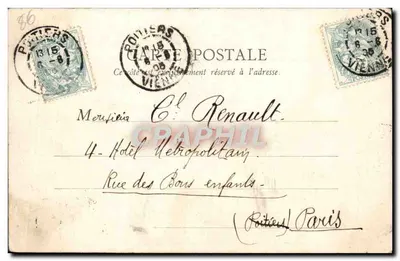 86
POITIERS
VIENNE
POITIERS
VIENNE
POITIERS
VIENNE
CARTE POSTALE
Ce côté est exclusivement réservé à l'adresse.
Monsieur Cl. Renault.
CPARAMA
4 - Hôtel Métropolitain
Rue des Bons enfants -
(Poitiers) Paris